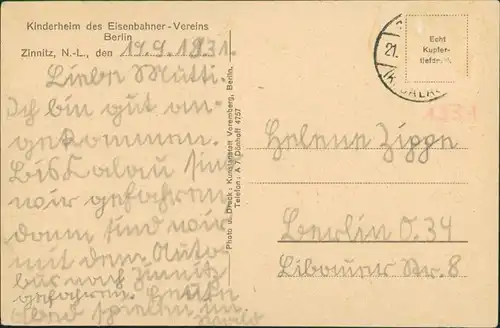 Kinderheim des Eisenbahner-Vereins
Berlin
Zinnitz, N.-L., den 19.9.1931.
Liebe Mutti.
Ich bin gut an-
gekommen.
Bis Calau sind
wir gefahren
dann sind wir
mit dem Auto-
bus nach Zinnitz
gefahren. Heute
Abend spielen im
Wald
Photo u. Druck: Kunstanstalt Voremberg, Berlin.
Telefon: A 7 Dönhoff 4757
21.
Echt
Kupfer-
tiefdruck.
1931
Helene Zippe
Berlin O. 34
Libauer Str. 8